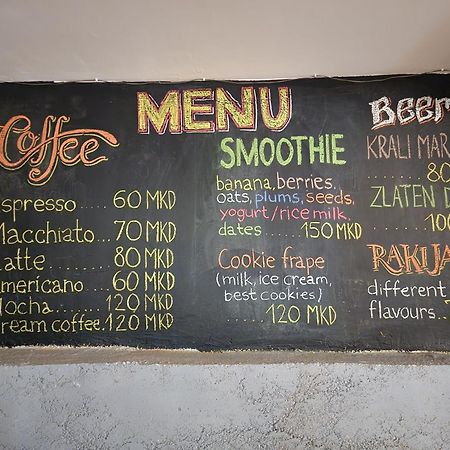 MENU
Coffee
Espresso ...... 60 MKD
Macchiato .... 70 MKD
Latte ......... 80 MKD
Americano ... 60 MKD
Mocha ....... 120 MKD
Cream coffee. 120 MKD
SMOOTHIE
banana, berries,
oats, plums, seeds,
yogurt/rice milk,
dates ....... 150 MKD
Cookie frape
(milk, ice cream,
best cookies)
...... 120 MKD
Beer
KRALI MAR
...... 80
ZLATEN D
...... 100
RAKIJA
different
flavours..